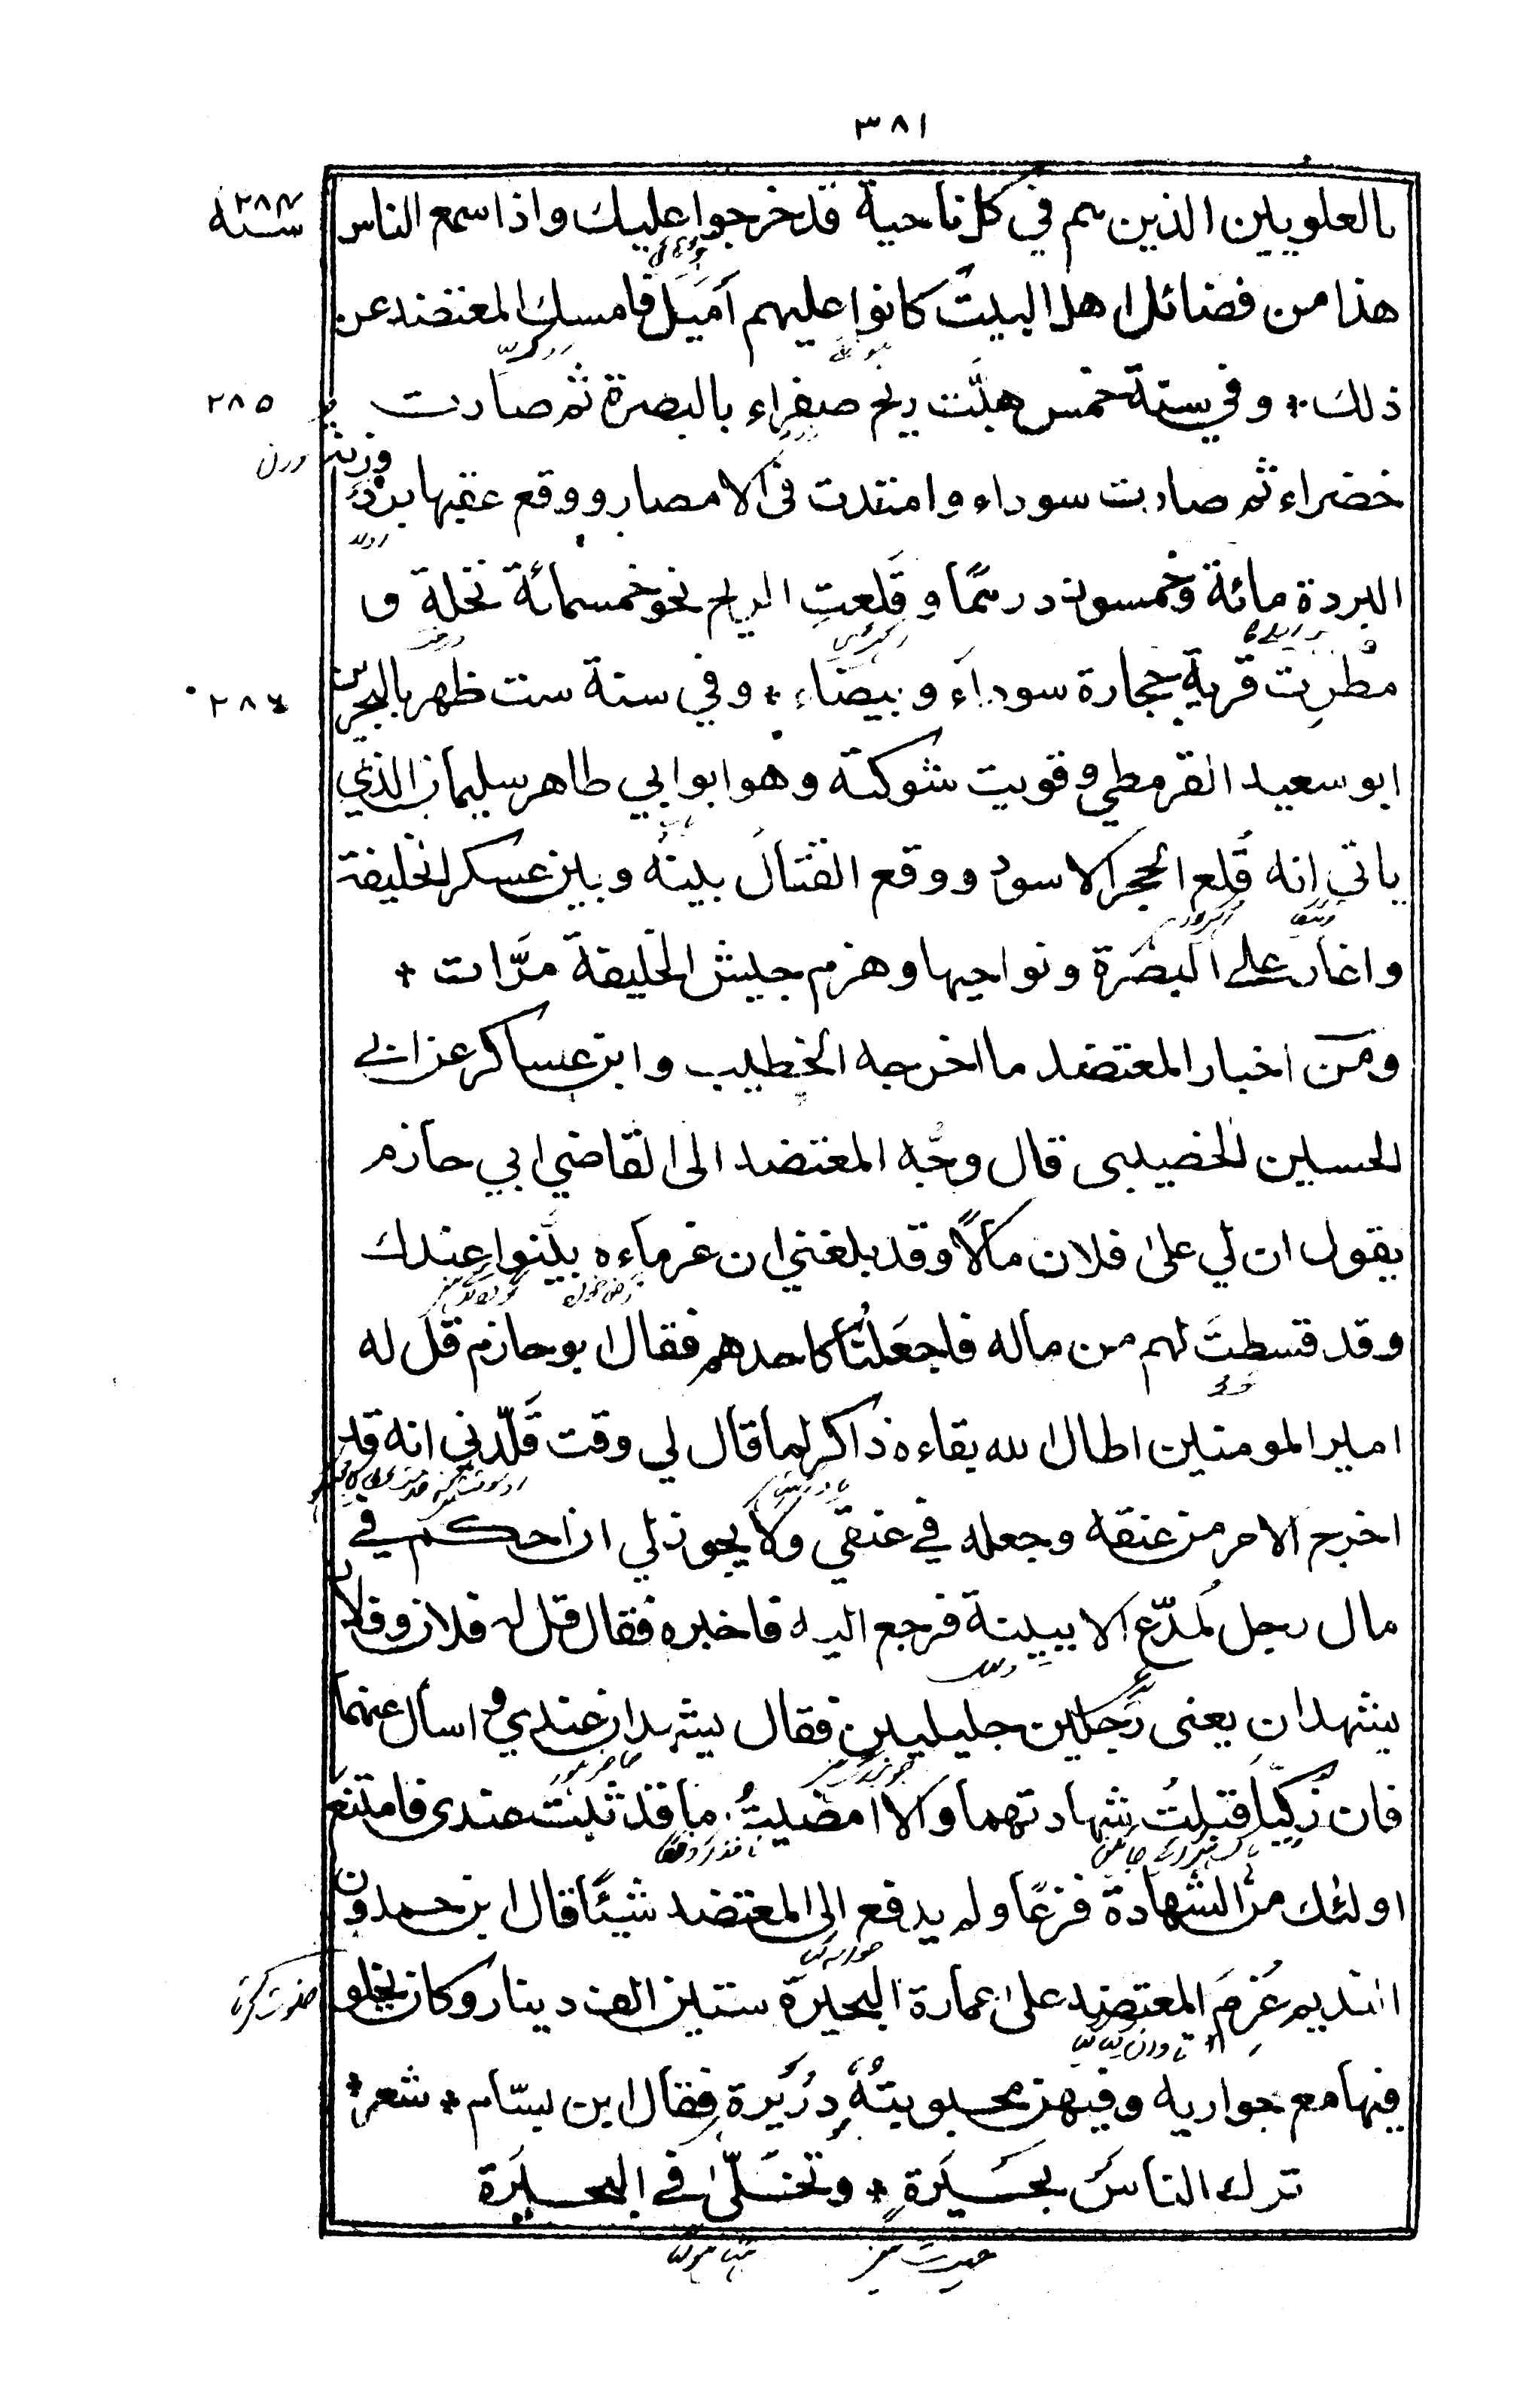 ٣٨١
بالعلويين الذين هم في كل ناحية قد خرجوا عليك واذا سمع الناس
سنة ٢٨٤
هذا من فضائل اهل البيت كانوا عليهم اَمْيَل فامسك المعتضد عن
ذلك * وفي سنة خمس هبّت ريح صفراء بالبصرة ثم صارت
٢٨٥
خضراء ثم صارت سوداء وامتدت في الامصار ووقع عقبها برد وزنة
وزن
البردة مائة وخمسون درهمًا وقَلعتِ الريح نحو خمسمائة نخلة و
مُطرِت قرية حجارة سوداء وبيضاء * وفي سنة ست ظهر بالبحرين
٢٨٦
ابو سعيد القرمطي وقويت شوكته وهو ابو ابي طاهر سليمان الذي
ياتي انه قَلع الحجر الاسود ووقع القتال بينه وبين عسكر الخليفة
واغار على البصرة ونواحيها وهزم جيش الخليفة مرّات *
ومن اخبار المعتضد ما اخرجه الخطيب وابن عساكر عن ابي
الحسين الخصيبى قال وجّه المعتضد الى القاضي ابي حازم
يقول ان لي على فلان مالاً وقد بلغني ان غرماءه بيّنوا عندك
وقد قسطتَ لهم من ماله فاجعَلْنا كاحدهم فقال ابو حازم قل له
امير المومنين اطال الله بقاءه ذاكر لما قال لي وقت قَلّدني انه قد
اخرج الامر من عنقه وجعله في عنقي ولا يجوز لي ان احكم في
مال رجل لمدّع الا ببينة فرجع اليه فاخبره فقال قل له فلان وفلان
يشهدان يعنى رجلين جليلين فقال يشهدان عندي واسأل عنهما
فان زُكّيا قبلتُ شهادتهما والا امضيتُ ما قد ثبت عندى فامتنع
اولئك من الشهادة فزعًا ولم يدفع الى المعتضد شيئًا قال ابن حمدون
النديم غَرِمَ المعتضد على عمارة البحيرة ستين الف دينار وكان يخلو
فيها مع جواريه وفيهن محبوبتهُ دُرَيرة فقال ابن بسّام * شعر *
ترك الناس بحَيرة * وتخَلّى في البحيرة